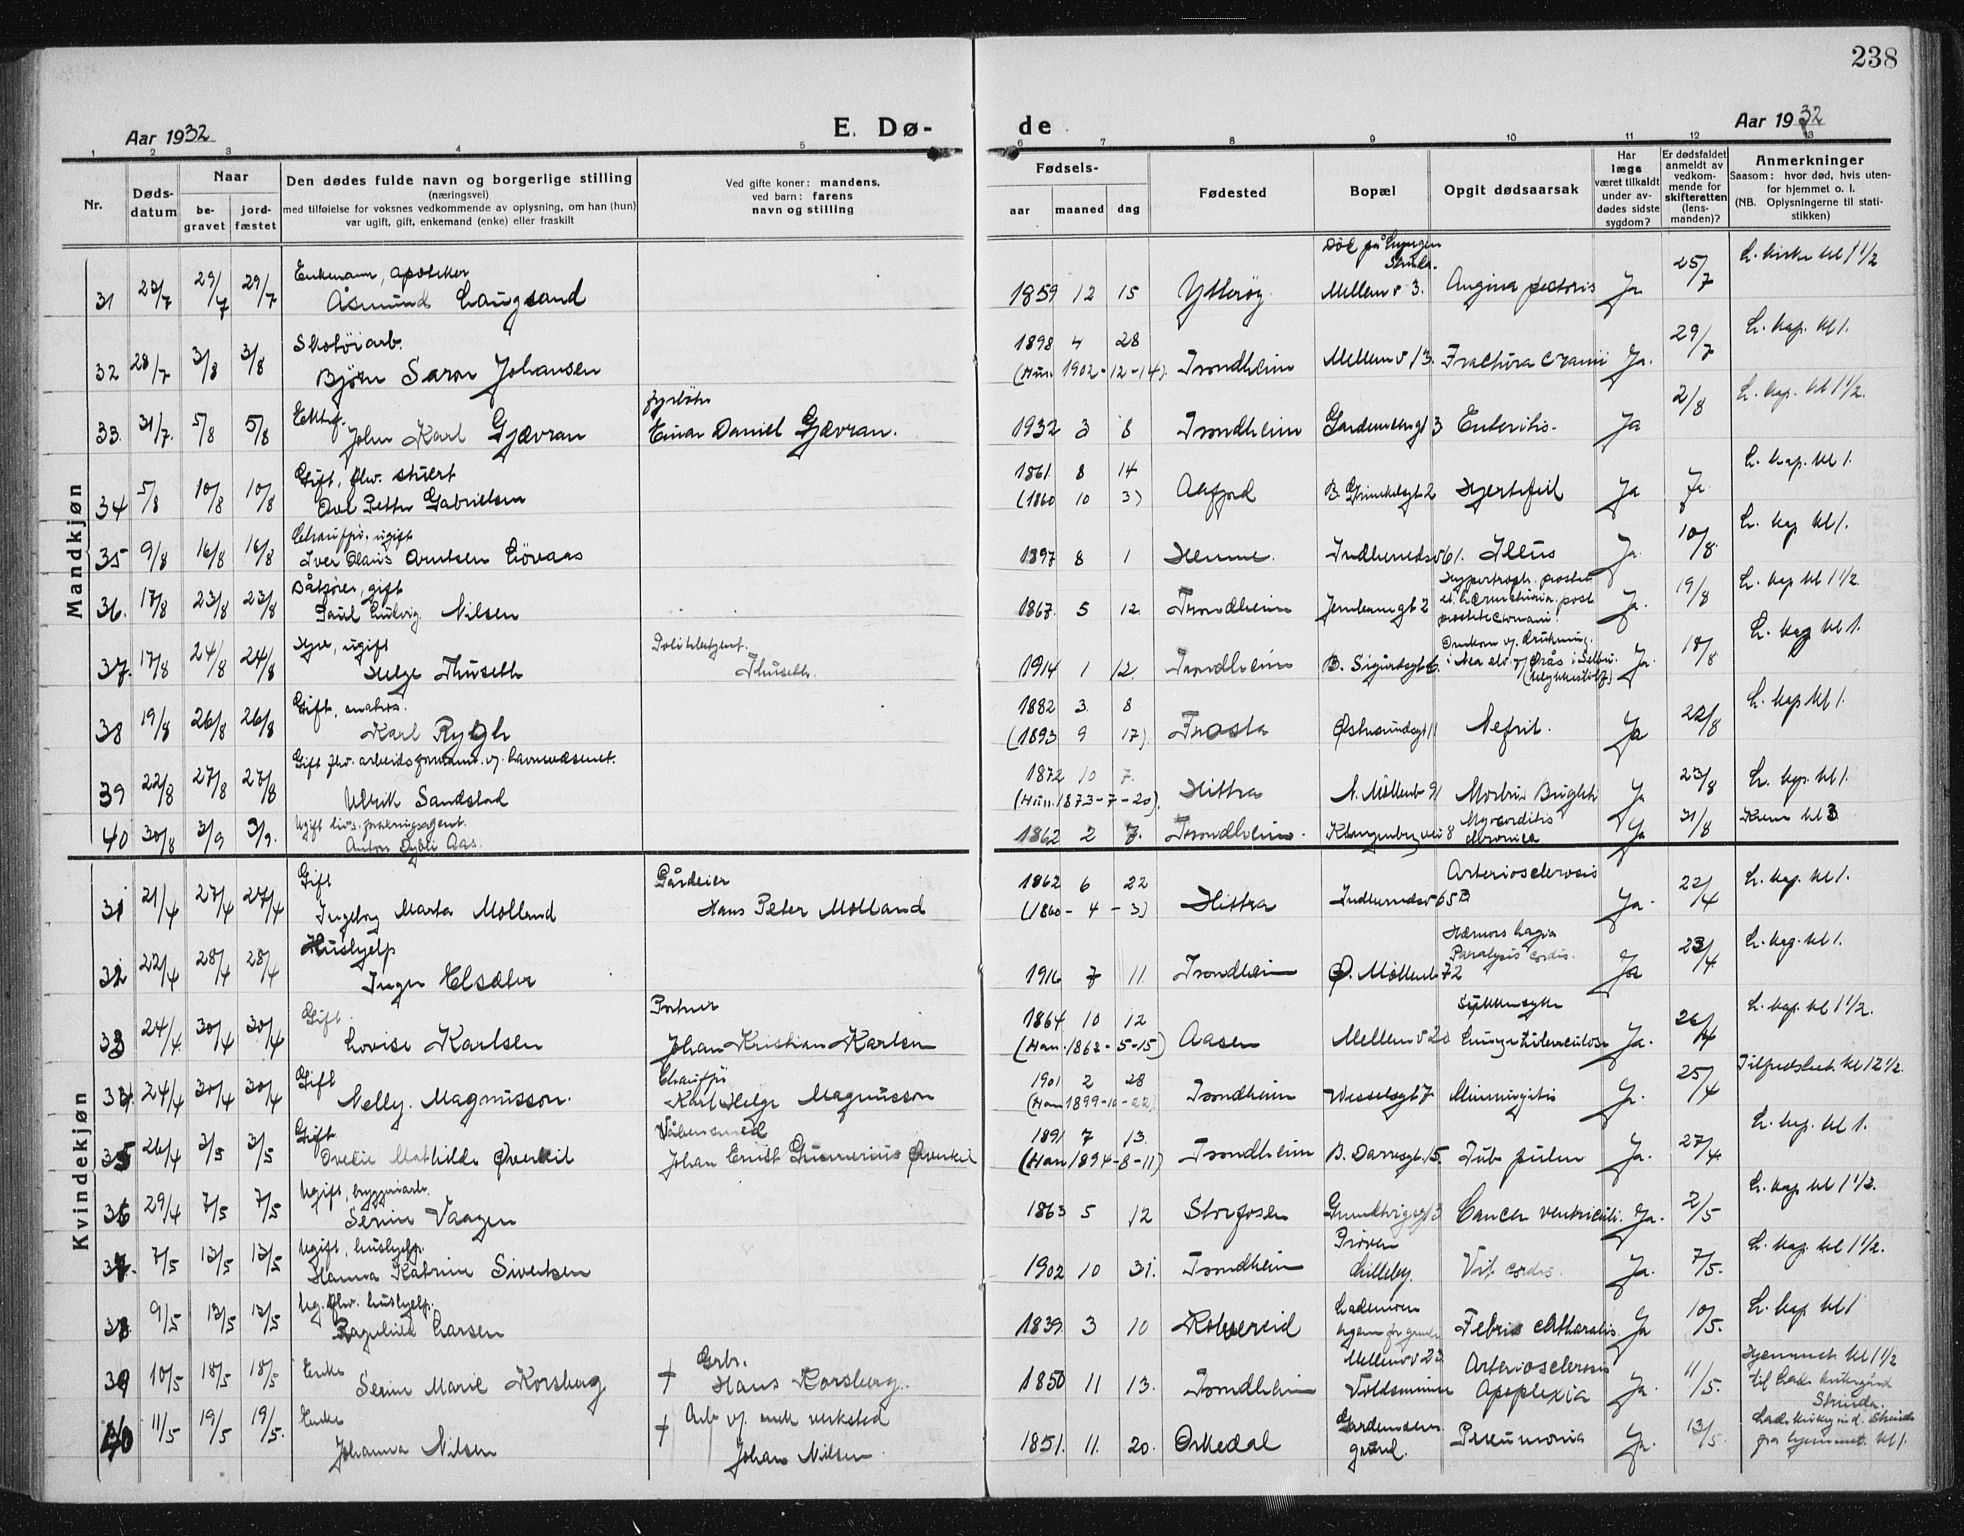 238
Aar 1932
E. Dø-
de
Aar 1932
1 2 3 4 5 6 7 8 9 10 11 12 13
Nr.
Døds-
datum
Naar
be-
gravet
jord-
fæstet
Den dødes fulde navn og borgerlige stilling
(næringsvei)
med tilføielse for voksnes vedkommende av oplysning, om han (hun)
var ugift, gift, enkemand (enke) eller fraskilt
Ved gifte koner: mandens,
ved barn: farens
navn og stilling
Fødsels-
aar maaned dag
Fødested
Bopæl
Opgit dødsaarsak
Har
læge
været tilkaldt
under av-
dødes sidste
sygdom?
Er dødsfaldet
anmeldt av
vedkom-
mende for
skifteretten
(lens-
manden)?
Anmerkninger
Saasom: hvor død, hvis uten-
for hjemmet o. l.
(NB. Oplysningerne til stati-
stikken)
Mandkjøn
Enkemann, apoteker
31 23/7 29/7 29/7 Åsmund Laugsand 1859 12 15 Ytterøy Mellem v 3. Angina pectoris Ja 25/7 L. kirke kl 1 1/2
Skotøiarb. 1898 4 28
32 28/7 3/8 3/8 Bjørn Saron Johansen (Hun. 1902-12-14). Trondheim Mellem v 13. Fractura cranii Ja. 29/7 L. kap. kl 1.
Ektef. fyrbøter
33. 31/7. 5/8 5/8 John Karl Gjævran Einar Daniel Gjævran. 1932 3 8 Trondheim Gardemoensgt 3 Enteritis. Ja 2/8 L. kap. kl 1 1/2.
Gift, fhv. stuert 1861 8 14
34 5/8 10/8 10/8 Ove Petter Gabrielsen (1860 10 3) Aafjord Hjertefeil Ja Ja L. kap. kl 1.
Chauffør, ugift
35 9/8 16/8 16/8 Iver Olaus Arntsen Løvaas 1897 8 1 Hemne. Indherredsv 61. Ileus Ja. 10/8 L. kap kl 1.
Båtfører, gift
36. 17/8 23/8 23/8 Paul Ludvig Nilsen 1867. 5 12 Trondheim Jernbanegt 2 Hypertroph. prostat. Ja. 19/8 L. kap kl 1 1/2
ugift
37. 17/8 24/8 24/8 Helge Thuseth Politibetjent. Thuseth. 1914 1 12. Trondheim B. Sigurdsgt 6. i Nea elv i Selbu. Ja. 18/8 L. kap kl 1.
Gift, 1882 3. 8
38 19/8 26/8 26/8 Karl Rygh (1893 9 17). Frosta Østersundsgt 11 Nefrit. Ja 22/8 L. kap kl 1.
Gift fhv. arbeidsformann. v/ havnevæsenet. 1872 10 7.
39 22/8 27/8 27/8 Ulrik Sandstad (Hun. 1873-7-20). Hittra N. Møllenb 91 Morbus Brightii Ja 23/8 L. kap. kl 1.
Ugift livs. forsikringsagent.
40 30/8 3/9 3/9. Anton Aas. 1862 2 7. Trondheim. Klingenberg vei 8 Myocarditis chronica Ja 31/8 Krem kl 3
Kvindekjøn
Gift Gårdeier 1862 6 22 Arteriosclerosis
31 21/4 27/4 27/4 Ingeborg Marta Molland Hans Peter Molland (1860-4-3) Hittra Indherredsv 65 B Ja. 22/4 L. kap. kl 1.
Hushjelp
32 22/4 28/4 28/4 Inger Elsæter 1916 7 11. Trondheim Ø. Møllenb 72 Paralysis cordis. Ja 23/4 L. kap. kl 1.
Gift Portner 1864 10 12 Sukkersyke
33 24/4. 30/4 30/4 Lovise Karlsen Johan Kristian Karlsen (Han. 1862-5-15) Aasen Mellem v 20 Lungetuberculose Ja. 26/4 L. kap. kl 1 1/2.
Gift Chauffør 1901 2 28
34. 24/4 30/4 30/4 Nelly. Magnusson. Karl Helge Magnusson (Han 1899-10-22) Trondheim Wesselsgt 7 Meningitis Ja. 25/4 Tilfredshet kl 12 1/2.
Gift Våbensmed 1891 7 13.
35 26/4 3/5 3/5 Mathilde Øverkil Johan Ernst Gunnerius Øverkil (Han 1894-8-11) Trondheim B. Darresgt 15. Tub pulm Ja. 27/4 L. kap. kl 1.
Ugift, bryggeriarb.
36 29/4 7/5 7/5 Serine Vaagen 1863 5 12 Storfosen Grundtvigsgt 3 Cancer ventriculi. Ja. 2/5 L. kap kl 1 1/2.
Ugift, hushjelp. Prøven
37. 7/5 13/5 13/5 Hanna Katrine Sivertsen 1902 10 31. Trondheim Lilleby. Vit. cordis. Ja. 7/5. L. kap. kl 1 1/2.
Ug. fhv. hushjelp. Lademoen
38 9/5 13/5 13/5 Ragnhild Larsen 1839 3 10 Kolvereid hjem for gamle Febris catharalis Ja 10/5. L. kap kl 1
Enke Grbr. Mellem v 23 Arteriosclerosis
39 10/5 18/5 18/5 Serine Marie Korsberg † Hans Korsberg. 1850 11 13. Trondheim Voldsminne Apoplexia Ja. 11/5. Hjemmet kl 1 1/2 til Lade kirkegård Strinda.
Enke Arb v/ mek verksted
40 11/5 19/5 19/5. Johanna Nilsen † Johan Nilsen 1851. 11. 20. Orkedal Gardemoens grend. Pneumonia Ja. 13/5. Lade kirkegård. Strinda fra hjemmet. kl 1.